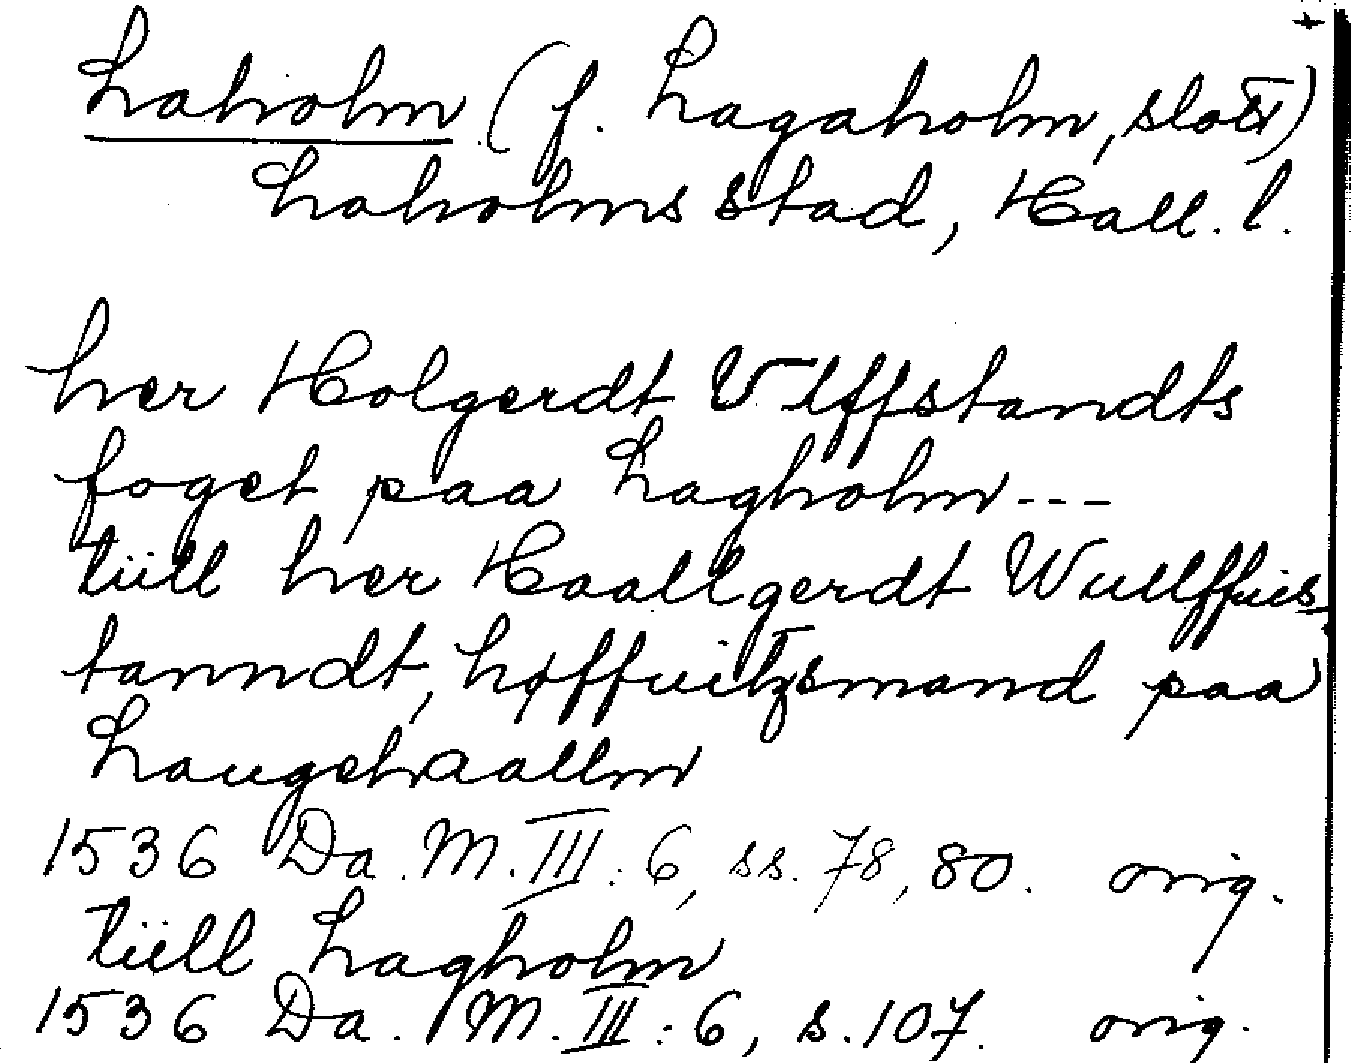 Laholm (f. Lagaholm, slott)
Laholms stad, Hall. l.
her Holgerdt Vlffstandts
foget paa Lagholm ---
tüll her Haallgerdt Wullffuis
tanndt, høffuitzsmand paa
Laugehaallm
1536 Da. M. III: 6, ss. 78, 80. orig.
tüll Lagholm
1536 Da. M. III: 6, s. 107. orig.